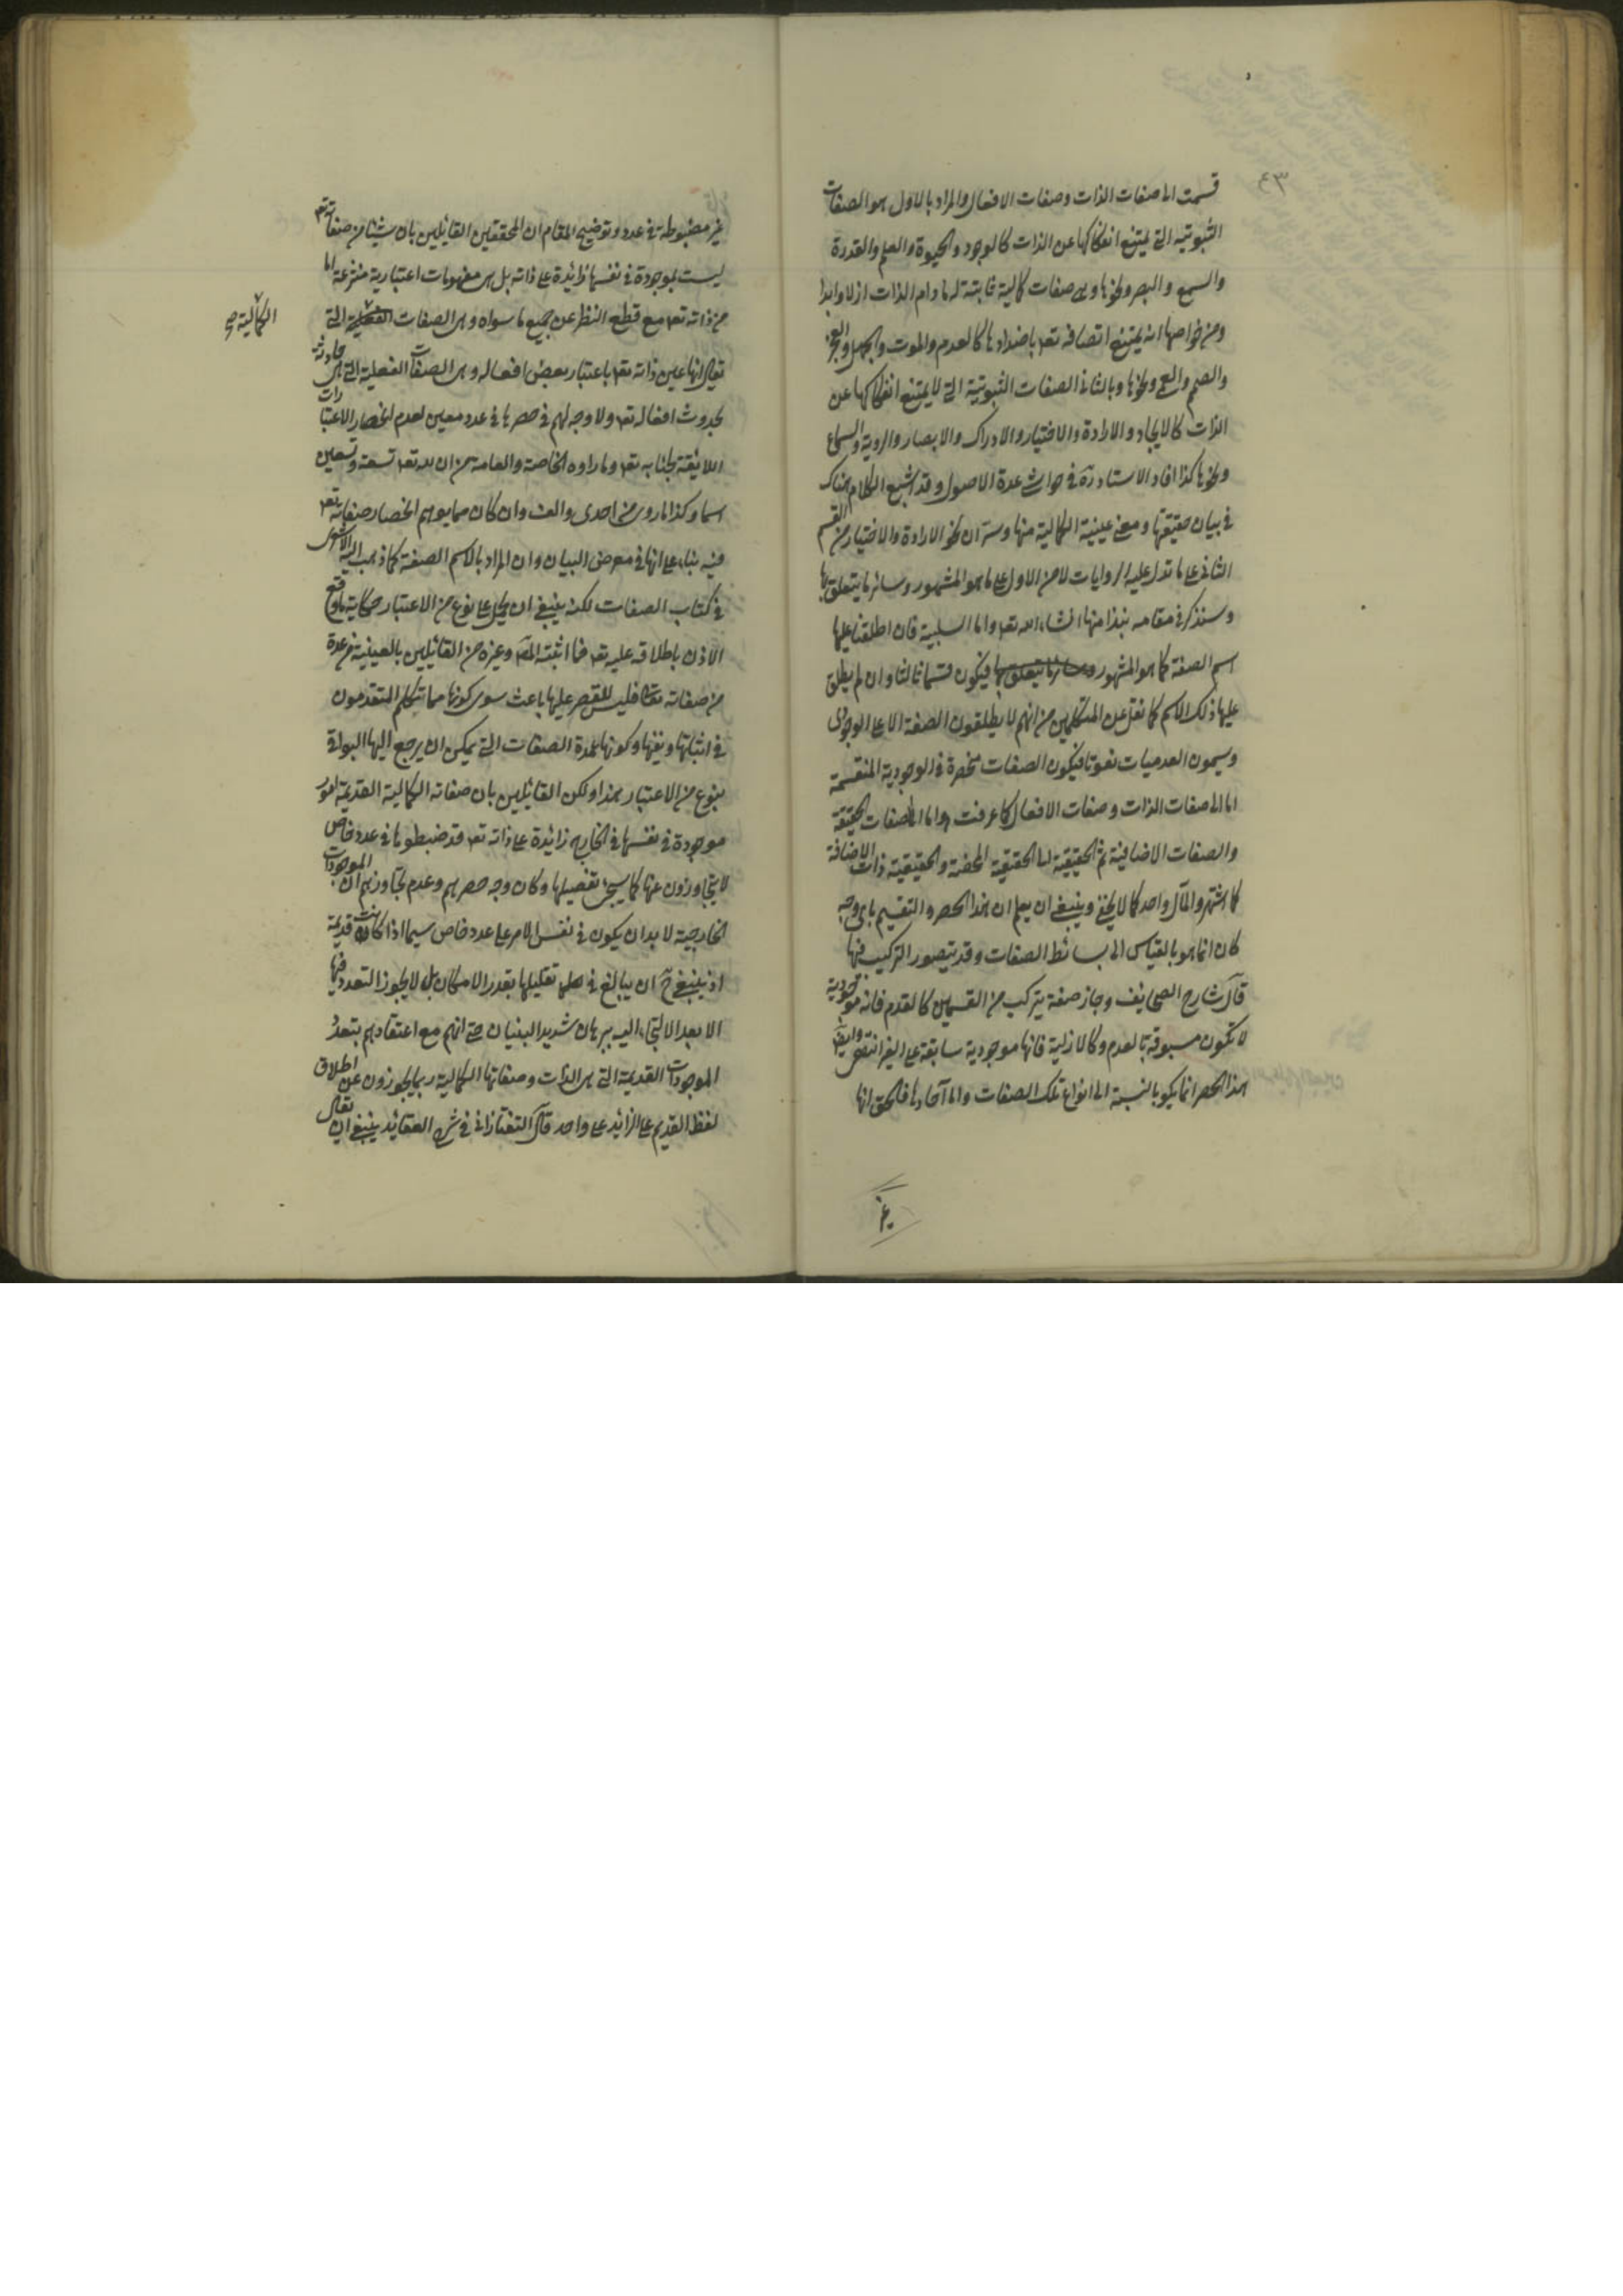 ٤٣
قسمت الى صفات الذات وصفات الافعال والمراد بالاول هو الصفات
الثبوتيه التى يمتنع انفكاكها عن الذات كالوجود والحيوة والعلم والقدرة
والسمع والبصر ونحوها وهى صفات كمالية ثابتة له مادام الذات ازلا وابدا
ومن خواصها انه يمتنع اتصافه تعه باضدادها كالعدم والموت والجهل والعجز
والصمم والعمى ونحوها وبالثانى الصفات الثبوتية التى لا يمتنع انفكاكها عن
الذات كالايجاد والارادة والاختيار والادراك والابصار والروية والسماع
ونحوها كذا افاد الاستاد ره فى حواشى عدة الاصول وقد اشبع الكلام هناك
فى بيان حقيقتها ومعنى عينية الكمالية منها وستر ان نحو الارادة والاختيار من القسم
الثانى على ما تدل عليه الروايات لا من الاول على ما هو المشهور وسائر ما يتعلق بها
وسنذكر فى مقامه نبذا منها انشاء الله تعه واما السلبية فان اطلقنا عليها
اسم الصفة كما هو المشهور وسائر ما يتعلق بها فيكون قسما ثالثا وان لم يطلق
عليها ذلك الاسم كما نقل عن المتكلمين من انهم لا يطلقون الصفة الا على الوجودى
ويسمون العدميات نعوتا فيكون الصفات منحصرة فى الوجودية المنقسمة
اما الى صفات الذات وصفات الافعال كما عرفت واما الى الصفات الحقيقة
والصفات الاضافية ثم الحقيقية الى الحقيقية المحضة والحقيقية ذات الاضافة
كما اشتهر والمآل واحد كما لا يخفى وينبغى ان يعلم ان هذا الحصر والتقسيم باى وجه
كان انما هو بالقياس الى بسائط الصفات وقد يتصور التركيب فيها
قال شارح الصحايف وجاز صفة يتركب من القسمين كالقدم فانه موجودية
لا تكون مسبوقة بالعدم وكالازلية فانها موجودية سابقة على الغير انتهى وايضا
هذا الحصر انما يكو بالنسبة الى انواع تلك الصفات واما آحادها فالحق انها
غير
غير مضبوطة فى عدد وتوضيح المقام ان المحققين القائلين بان شيئا من صفاته تعه
ليست بموجودة فى نفسها زائدة على ذاته بل هى مفهومات اعتبارية منتزعة اما
من ذاته تعه مع قطع النظر عن جميع ما سواه وهى الصفات الفعلية التى
الكمالية صح
يقال انها عين ذاته تعه باعتبار بعض افعاله وهى الصفات الفعلية التى هى حادثة
بحدوث افعاله تعه ولا وجه لهم فى حصرها فى عدد معين لعدم انحصار الاعتبارات
اللائقة بجنابه تعه وما رواه الخاصة والعامة من ان لله تعه تسعة وتسعين
اسما وكذا ما روى من احدى والف وان كان مما يوهم انحصار صفاته تعه
فيه بناء على انها فى معرض البيان وان المراد بالاسم الصفة كما ذهب اليه الاشعرى
فى كتاب الصفات لكنه ينبغى ان يحمل على نوع من الاعتبار حكاية ما وقع
الاذن باطلاقه عليه تعه فما اثبته المصّ وغيره من القائلين بالعينية من عدة
من صفاته تعالى فليس للقصر عليها باعث سوى كونها مما تكلم المتقدمون
فى اثباتها ونفيها وكونها عمدة الصفات التى يمكن ان يرجع اليها البواقى
بنوع من الاعتبار هذا ولكن القائلين بان صفاته الكمالية القديمة امور
موجودة فى نفسها فى الخارج زائدة على ذاته تعه قد ضبطوها فى عدد خاص
لا يتجاوزون عنها كما سيجئ تفصيلها وكان وجه حصرهم وعدم تجاوزهم ان الموجودات
الخارجية لا بد ان يكون فى نفس الامر على عدد خاص سيما اذا كانت قديمة
اذ ينبغى ح ان يبالغ فى تقليلها بقدر الامكان بل لا يجوز التعدد فيها
الا بعد الالتجاء اليه ببرهان شديد البنيان حتى انهم مع اعتقادهم بتعدد
الموجودات القديمة التى هى الذات وصفاتها الكمالية ربما يجوزون عن اطلاق
لفظ القديم على الزائد على واحد قال التفتازانى فى شرح العقائد ينبغى ان يقال